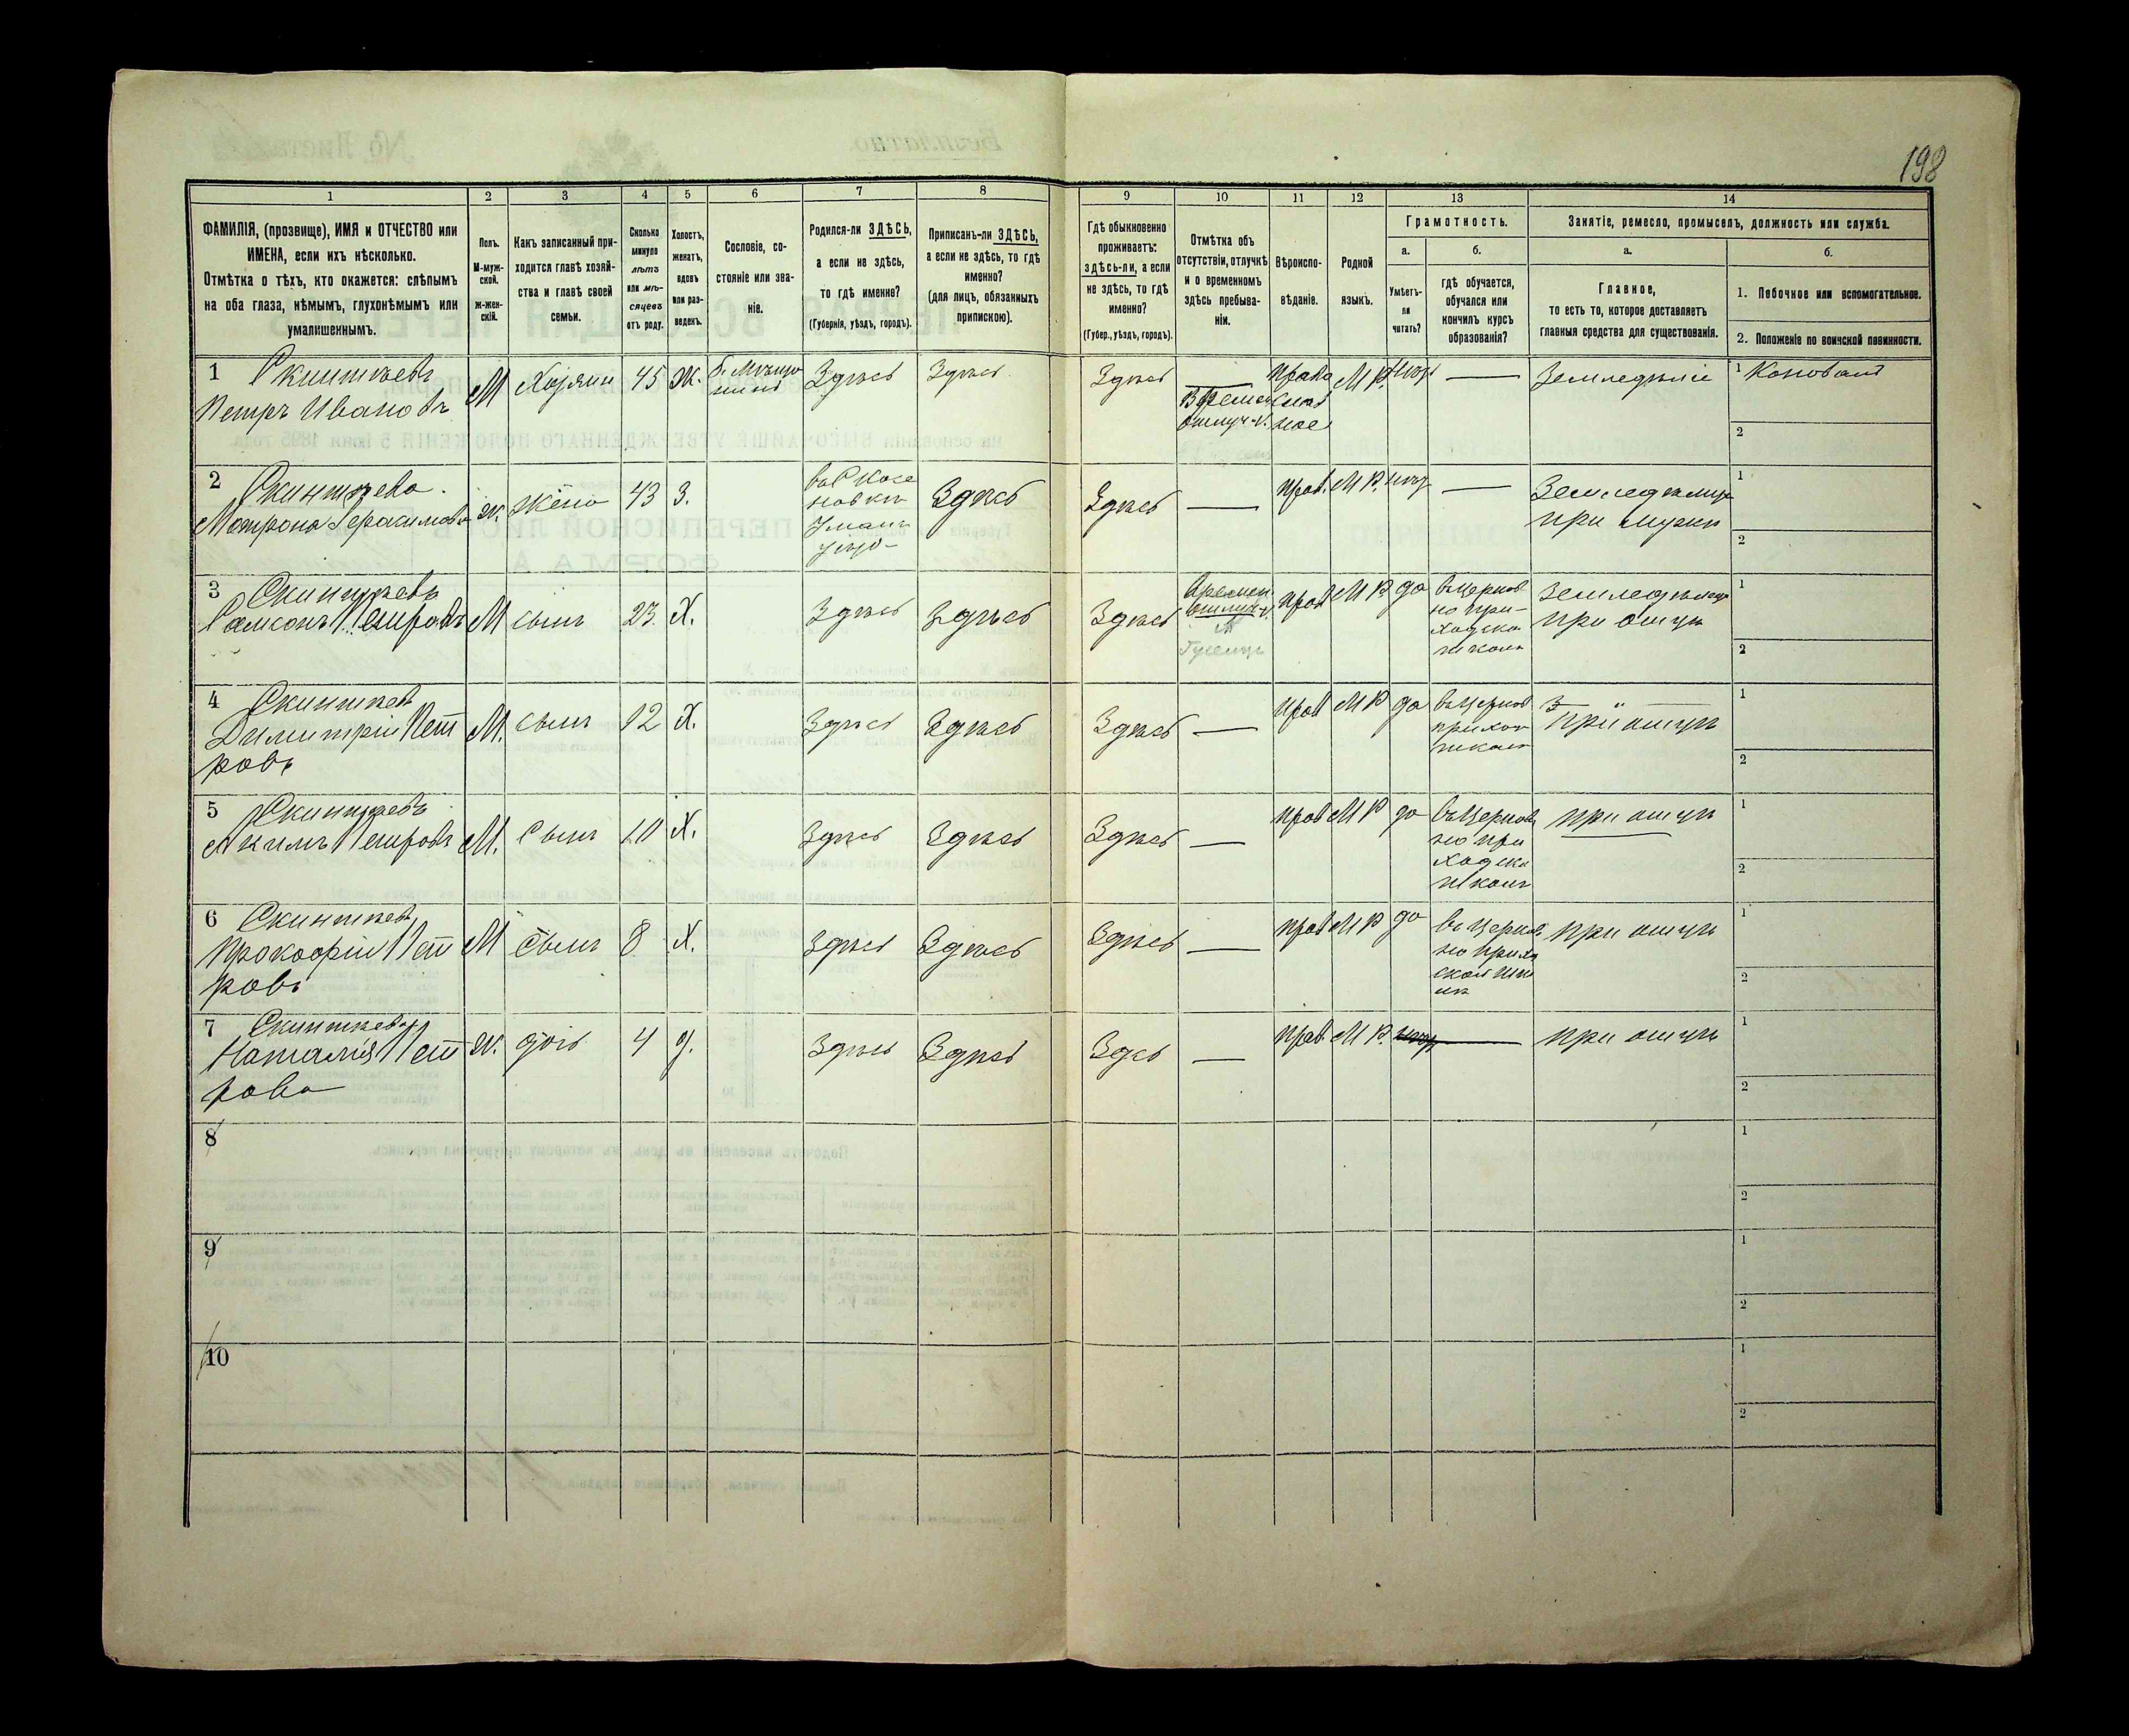 198
1 2 3 4 5 6 7 8 9 10 11 12 13 14
ФАМИЛІЯ, (прозвище), ИМЯ и ОТЧЕСТВО или
ИМЕНА, если ихъ нѣсколько.
Отмѣтка о тѣхъ, кто окажется: слѣпымъ
на оба глаза, нѣмымъ, глухонѣмымъ или
умалишеннымъ.
Полъ.
М-муж-
ской.
Ж-жен-
скій.
Какъ записанный при-
ходится главѣ хозяй-
ства и главѣ своей
семьи.
Сколько
минуло
лѣтъ
или мѣ-
сяцевъ
отъ роду.
Холостъ,
женатъ,
вдовъ
или раз-
веденъ.
Сословіе, со-
стояніе или зва-
ніе.
Родился-ли ЗДѢСЬ,
а если не здѣсь,
то гдѣ именно?
(Губернія, уѣздъ, городъ).
Приписанъ-ли ЗДѢСЬ,
а если не здѣсь, то гдѣ
именно?
(для лицъ, обязанныхъ
припискою).
Гдѣ обыкновенно
проживаетъ:
здѣсь-ли, а если
не здѣсь, то гдѣ
именно?
(Губер., уѣздъ, городъ).
Отмѣтка объ
отсутствіи, отлучкѣ
и о временномъ
здѣсь пребыва-
ніи.
Вѣроиспо-
вѣданіе.
Родной
языкъ.
Грамотность.
а.
Умѣетъ-
ли
читать?
б.
гдѣ обучается,
обучался или
кончилъ курсъ
образованія?
Занятіе, ремесло, промыселъ, должность или служба.
а.
Главное,
то есть то, которое доставляетъ
главныя средства для существованія.
б.
1. Побочное или вспомогательное.
2. Положеніе по воинской повинности.
1 Скинтѣевъ
Петръ Ивановъ
М Хозяинъ 45 Ж. Здѣсь Здѣсь Здѣсь —
Времен
отлуч.
право
слав
ное
М Р. нѣтъ — Земледѣліе 1 Коновалъ
2
2 Скинтѣева
Матрона Герасимова
ж. жена 43 З.
Уман
уѣз
Здѣсь Здѣсь — прав. М Р. нѣтъ —
Земледѣлец
при мужѣ
1
2
3 Скинтѣевъ
Самсонъ Петровъ
М сынъ 23 Х. Здѣсь Здѣсь Здѣсь
Времен
отлуч.
прав М Р да
въ церков
но при-
ходско
школѣ
Земледѣлец
при отцѣ
1
2
4 Скинтѣев
Димитрій Пет
ровъ
М. сынъ 12 Х. Здѣсь Здѣсь Здѣсь — прав М Р да
въ церков
приход
школѣ
при отцѣ
1
2
5 Скинтѣевъ
Акимъ Петровъ
М. Сынъ 10 Х. Здѣсь Здѣсь Здѣсь — прав М Р да
въ церков
но при
ходско
школѣ
при отцѣ
1
2
6 Скинтѣев
Прокофій Пет
ровъ
М Сынъ 8 Х. Здѣсь Здѣсь Здѣсь — прав М Р да
въ церков
но прихо
ской шко
лѣ
при отцѣ
1
2
7 Скинтѣева
Наталія Пет
рова
ж. дочь 4 д. Здѣсь Здѣсь Здсь — прав. М Р. нѣтъ — при отцѣ
1
2
8
1
2
9
1
2
10
1
2